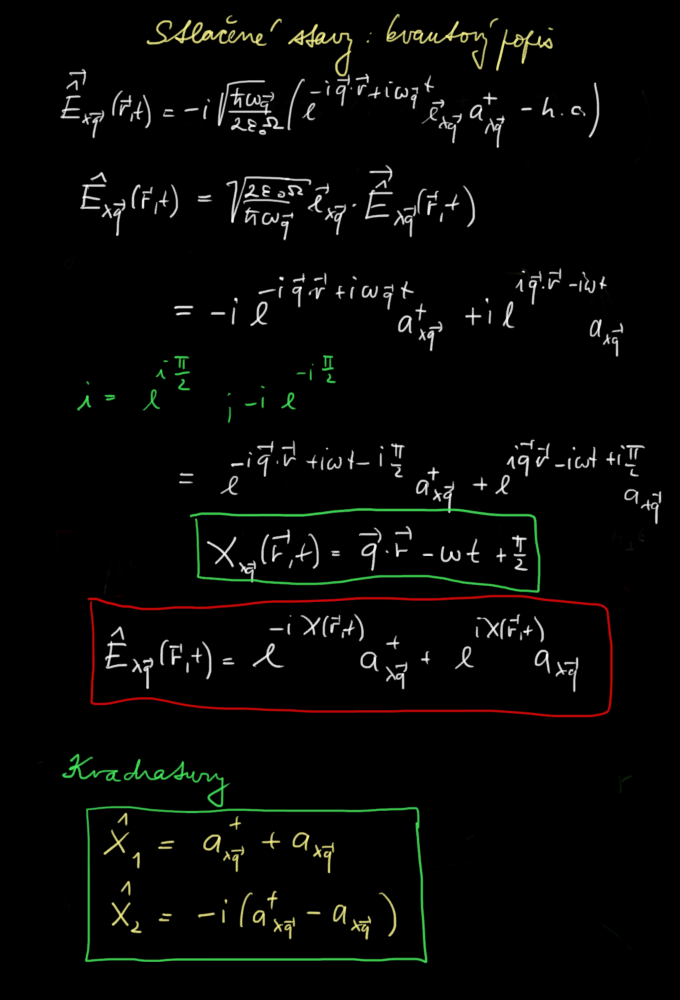 Stlačené stavy: kvantový popis
$\hat{\vec{E}}_{\lambda\vec{q}}(\vec{r},t) = -i\sqrt{\frac{\hbar\omega_{\vec{q}}}{2\varepsilon_0\Omega}}\left(e^{-i\vec{q}\cdot\vec{r}+i\omega_{\vec{q}}t}\vec{e}_{\lambda\vec{q}}a^+_{\lambda\vec{q}} - h.c.\right)$
$\hat{E}_{\lambda\vec{q}}(\vec{r},t) = \sqrt{\frac{2\varepsilon_0\Omega}{\hbar\omega_{\vec{q}}}}\vec{e}_{\lambda\vec{q}}\cdot\hat{\vec{E}}_{\lambda\vec{q}}(\vec{r},t)$
$= -i e^{-i\vec{q}\cdot\vec{r}+i\omega_{\vec{q}}t}a^+_{\lambda\vec{q}} + i e^{i\vec{q}\cdot\vec{r}-i\omega t}a_{\lambda\vec{q}}$
$i = e^{i\frac{\pi}{2}} \quad ; -i \; e^{-i\frac{\pi}{2}}$
$= e^{-i\vec{q}\cdot\vec{r}+i\omega t-i\frac{\pi}{2}}a^+_{\lambda\vec{q}} + e^{i\vec{q}\vec{r}-i\omega t+i\frac{\pi}{2}}a_{\lambda\vec{q}}$
$\chi_{\lambda\vec{q}}(\vec{r},t) = \vec{q}\cdot\vec{r} - \omega t + \frac{\pi}{2}$
$\hat{E}_{\lambda\vec{q}}(\vec{r},t) = e^{-i\chi(\vec{r},t)}a^+_{\lambda\vec{q}} + e^{i\chi(\vec{r},t)}a_{\lambda\vec{q}}$
Kvadratury
$\hat{X}_1 = a^+_{\lambda\vec{q}} + a_{\lambda\vec{q}}$
$\hat{X}_2 = -i(a^+_{\lambda\vec{q}} - a_{\lambda\vec{q}})$